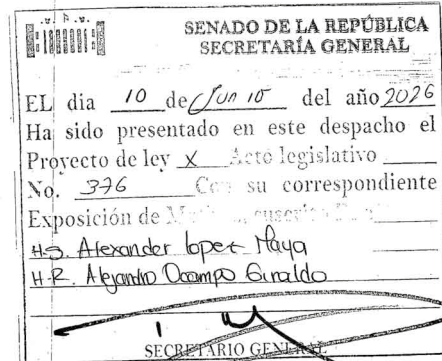 SENADO DE LA REPÚBLICA
SECRETARÍA GENERAL
EL dia 10 de Junio del año 2026
Ha sido presentado en este despacho el
Proyecto de ley X Acto legislativo
No. 376 Con su correspondiente
Exposición de
H.S. Alexander lopez Maya
H.R. Alejandro Ocampo Giraldo
SECRETARIO GENERAL